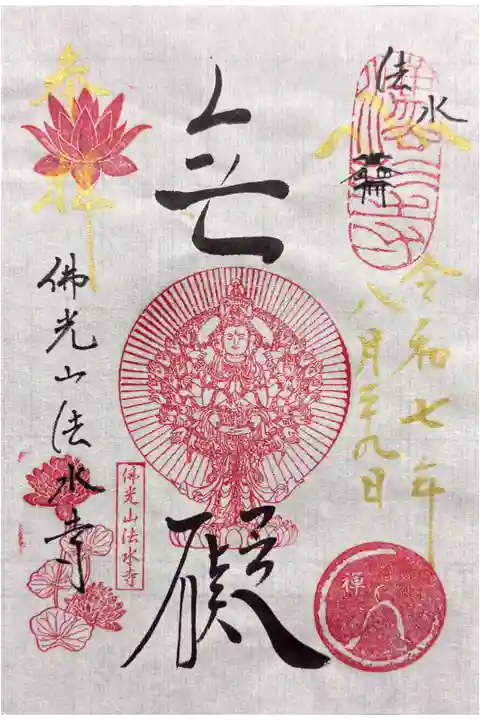 法水
令和七年
八月二十九日
禅
無礙
奉拝
佛光山法水寺
佛光山法水寺